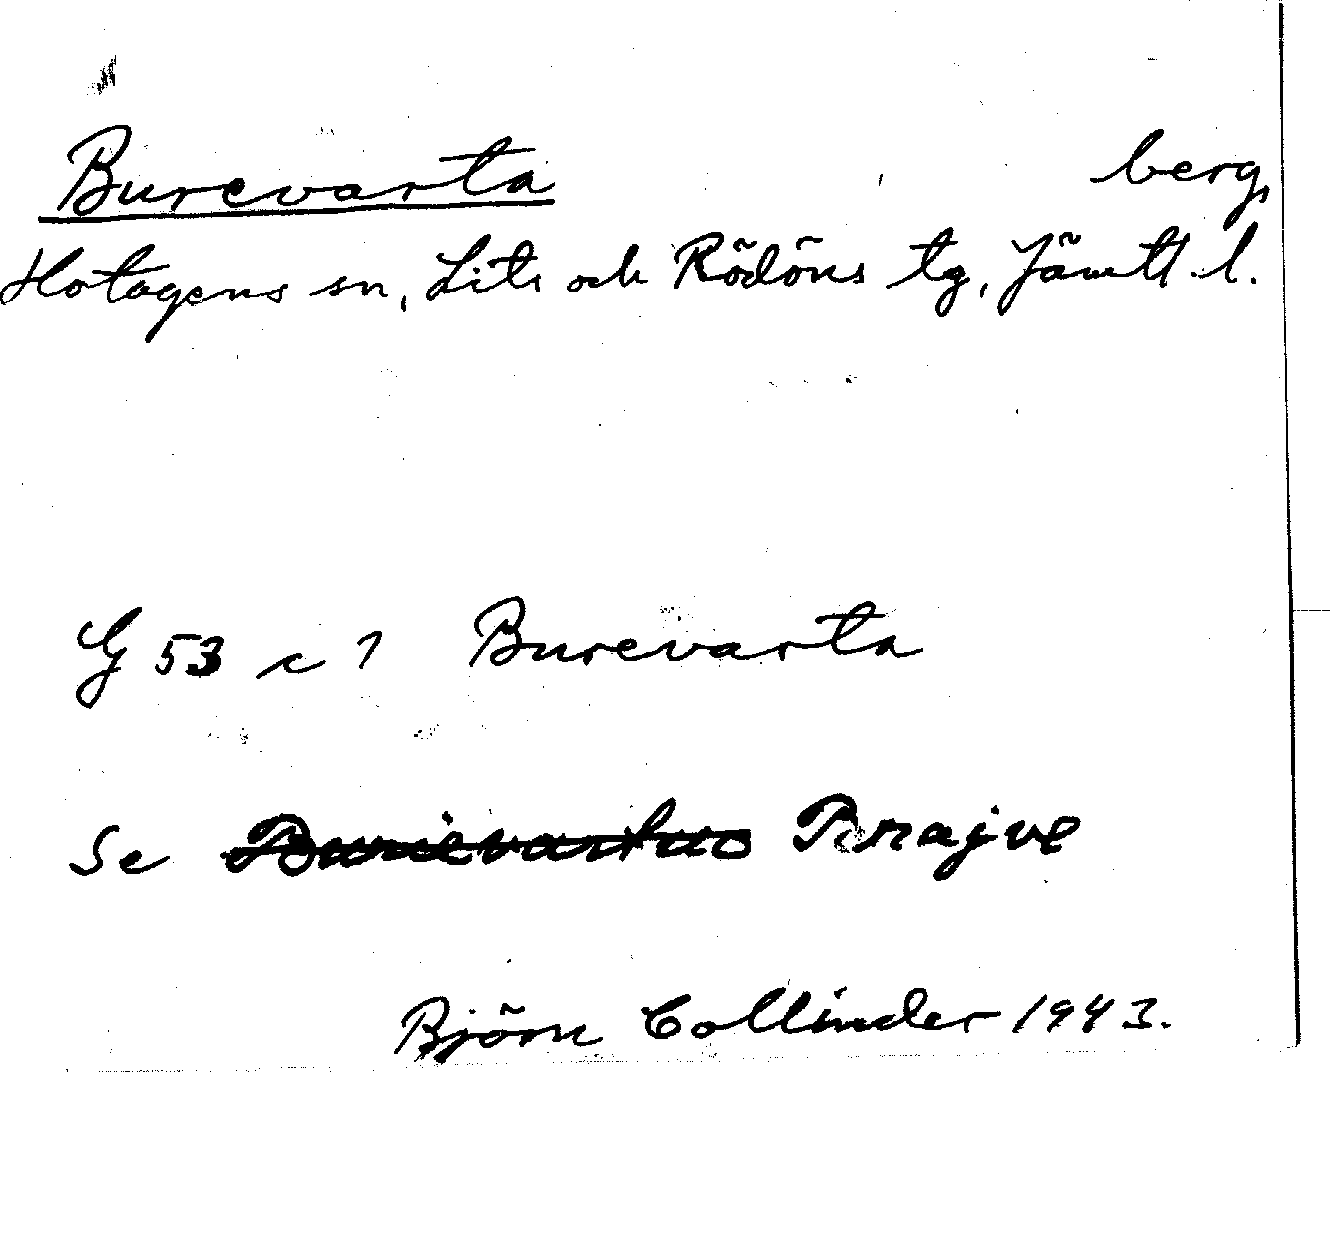 Burevarta berg,
Hotagens sn, Lits och Rödöns tg, Jämtl. l.
G 53 c ? Burevarta
Se Brajve
Björn Collinder 1943.